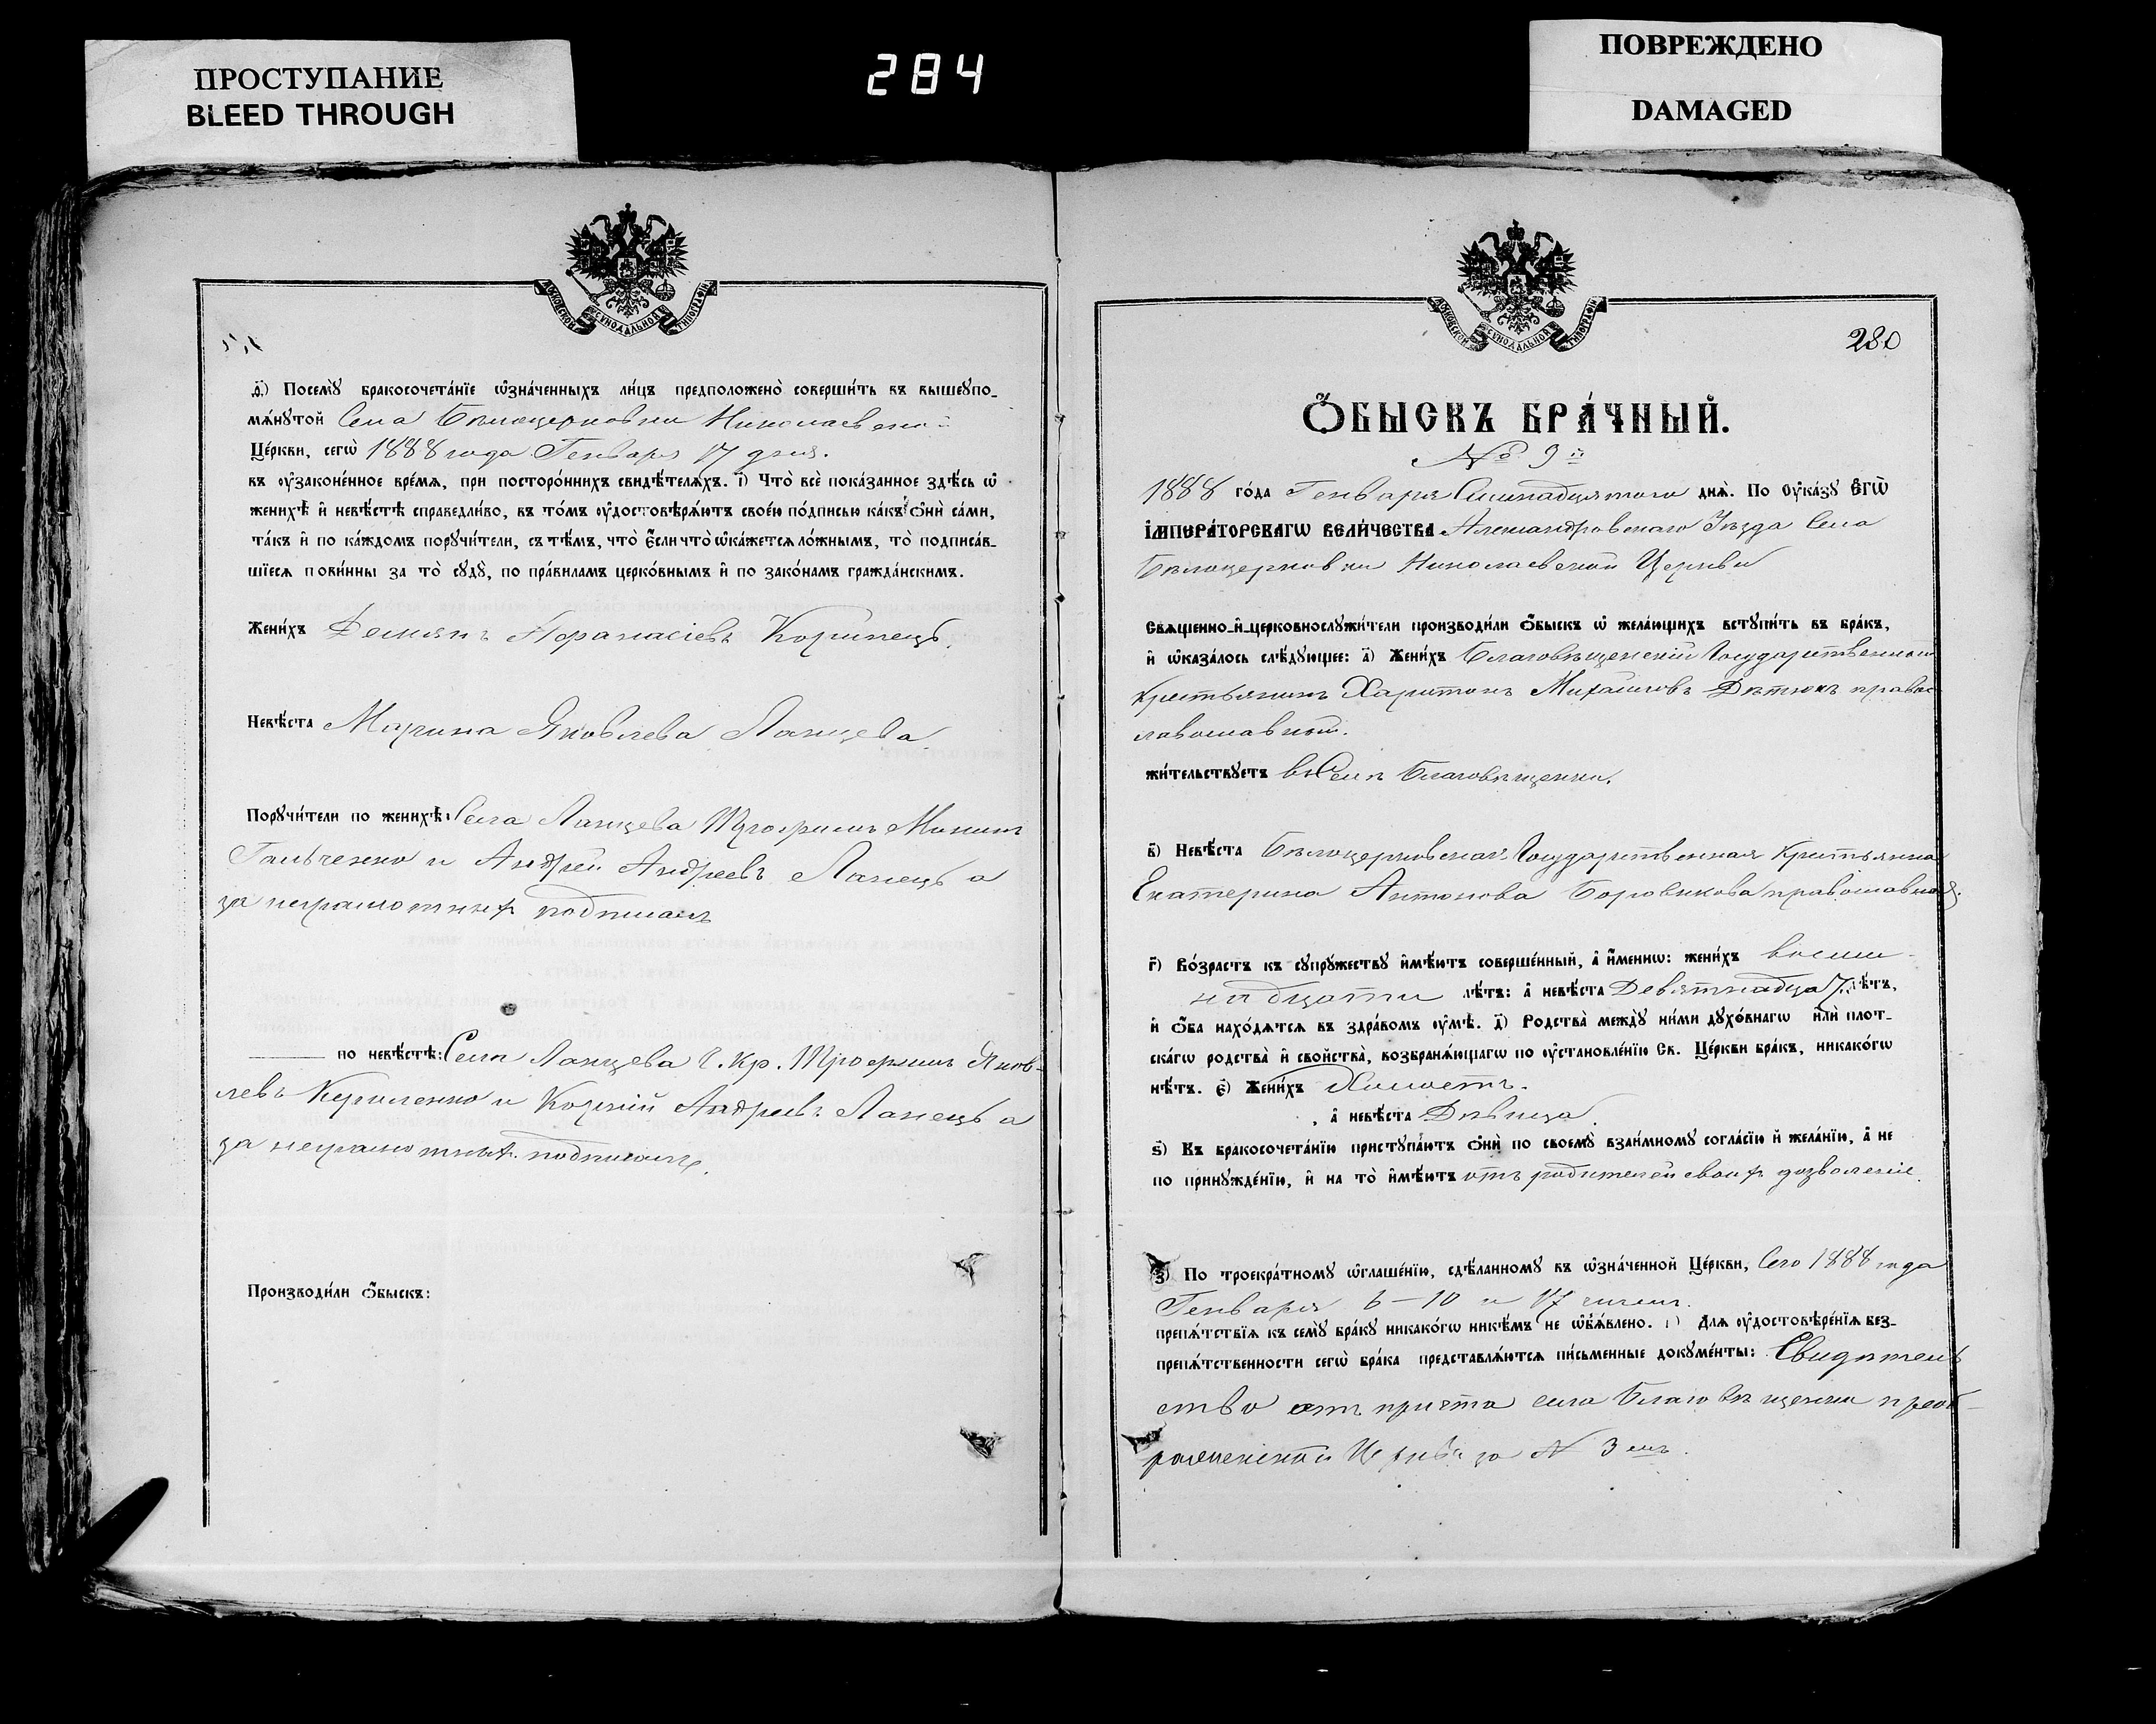 ПРОСТУПАНИЕ
BLEED THROUGH
284
ПОВРЕЖДЕНО
DAMAGED
МОСКОВСКОЙ СѴНОДАЛЬНОЙ ТИПОГРАФІИ
д҃) Посемꙋ̀ бракосочета́нїе ѡ҆зна́ченныхъ ли́цъ предположено̀ соверши́ть въ вышеꙋпо-
мѧ́нꙋтой Села Бѣлоцерковки Николаевской
Це́ркви, сегѡ̀ 1888 года Генваря 17 дня.
въ ᲂу҆законе́нное вре́мѧ, при посторо́ннихъ свидѣ́телѧхъ. і҃) Что̀ всѐ пока́занное здѣ́сь ѡ҆
женихѣ̀ и҆ невѣ́стѣ справедли́во, въ то́мъ ᲂу҆достовѣрѧ́ютъ свое́ю по́дписью ка́къ ѻ҆нѝ са́ми,
та́къ и҆ по ка́ждомъ порꙋчи́тели, съ тѣ́мъ, что̀ є҆́сли что̀ ѡ҆ка́жетсѧ ло́жнымъ, то̀ подписа́в-
шїесѧ пови́нны за то̀ сꙋдꙋ̀, по пра́виламъ церко́внымъ и҆ по зако́намъ гражда́нскимъ.
Жени́хъ Демьянъ Афанасіевъ Коринець.
Невѣ́ста Марина Яковлева Ланцева.
Порꙋчи́тели по женихѣ̀: Села Ланцева Трофимъ Микит
Гальченко и Андрей Андреевъ Ланець а
за неграмотныхъ подписалъ
по невѣ́стѣ: Села Ланцева Г. Кр. Трофимъ Яков-
левъ Кириленко и Корній Андреевъ Ланець а
за неграмотныхъ подписалъ.
Производи́ли ѻ҆́быскъ:
МОСКОВСКОЙ СѴНОДАЛЬНОЙ ТИПОГРАФІИ
280
Ѻ҆́БЫСКЪ БРА́ЧНЫЙ.
№ 9й
1888 го́да Генваря Семнадцятого днѧ̀. По ᲂу҆ка́зꙋ Є҆ГѠ̀
І҆МПЕРА́ТОРСКАГѠ ВЕЛИ́ЧЕСТВА Александровскаго Уѣзда Села
Бѣлоцерковки Николаевской Церкви
Свѧщенно-и҆-церковнослꙋжи́тели производи́ли ѻ҆́быскъ ѡ҆ жела́ющихъ встꙋпи́ть въ бра́къ,
и҆ ѡ҆каза́лось слѣ́дꙋющее: а҃) Жени́хъ Благовѣщенскій Государственный
Крестьянинъ Харитонъ Михайловъ Дѣтюкъ правос
лавославный.
жи́тельствꙋетъ въ Селѣ Благовѣщенки.
в҃) Невѣ́ста Бѣлоцерковская Государственная Крестьянка
Екатерина Антонова Боровикова православная.
г҃) Во́зрастъ къ сꙋпрꙋ́жествꙋ и҆мѣ́ютъ соверше́нный, а҆ и҆́меннѡ: жени́хъ восем-
надцати лѣ́тъ: а҆ невѣ́ста Девятнадца 7. лѣ́тъ,
и҆ ѻ҆́ба нахо́дѧтсѧ въ здра́вомъ ᲂу҆мѣ̀. д҃) Родства̀ междꙋ̀ ни́ми дꙋхо́внагѡ и҆лѝ плот-
ска́гѡ родства̀ и҆ сво́йства̀, возбранѧ́ющагѡ по ᲂу҆становле́нїю Св. Це́ркви бра́къ, никако́гѡ
нѣ́тъ. є҃) Жени́хъ Холостъ.
, а҆ невѣ́ста Дѣвица.
ѕ҃) Къ бракосочета́нїю пристꙋпа́ютъ ѻ҆нѝ по своемꙋ̀ взаи́мномꙋ согла́сїю и҆ жела́нїю, а҆ не
по принꙋжде́нїю, и҆ на то̀ и҆мѣ́ютъ отъ родителей своихъ дозволеніе.
з҃) По троекра́тномꙋ ѡ҆глаше́нїю, сдѣ́ланномꙋ въ ѡ҆зна́ченной Це́ркви, Сего 1888 года
Генваря 6-10 и 17 чисел.
препѧ́тствїѧ къ семꙋ̀ бра́кꙋ никако́гѡ никѣ́мъ не ѡ҆б̾ѧ́влено. и҃) Длѧ ᲂу҆достовѣре́нїѧ без-
препѧ́тственности сегѡ̀ бра́ка представлѧ́ютсѧ пи́сьменные докꙋме́нты: Свидѣтель
ство отъ причта села Благовѣщенки преоб-
раженской Церкви за № 3мъ.